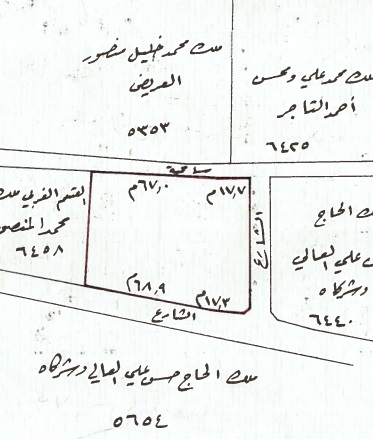 ملك محمد خليل منصور
العريض
٥٣٥٣
ملك محمد علي ومحسن
أحمد التاجر
٦٤٢٥
ساحة
القسم الغربي ملك
محمد المنصو
٦٤٥٨
٦٧,٠م
١٧,٧م
الشارع
٦٨,٩م
١٧,٣م
الشارع
ك الحاج
علي العالي
وشركاه
٦٤٤٠
ملك الحاج حسن علي العالي وشركاه
٥٦٥٤